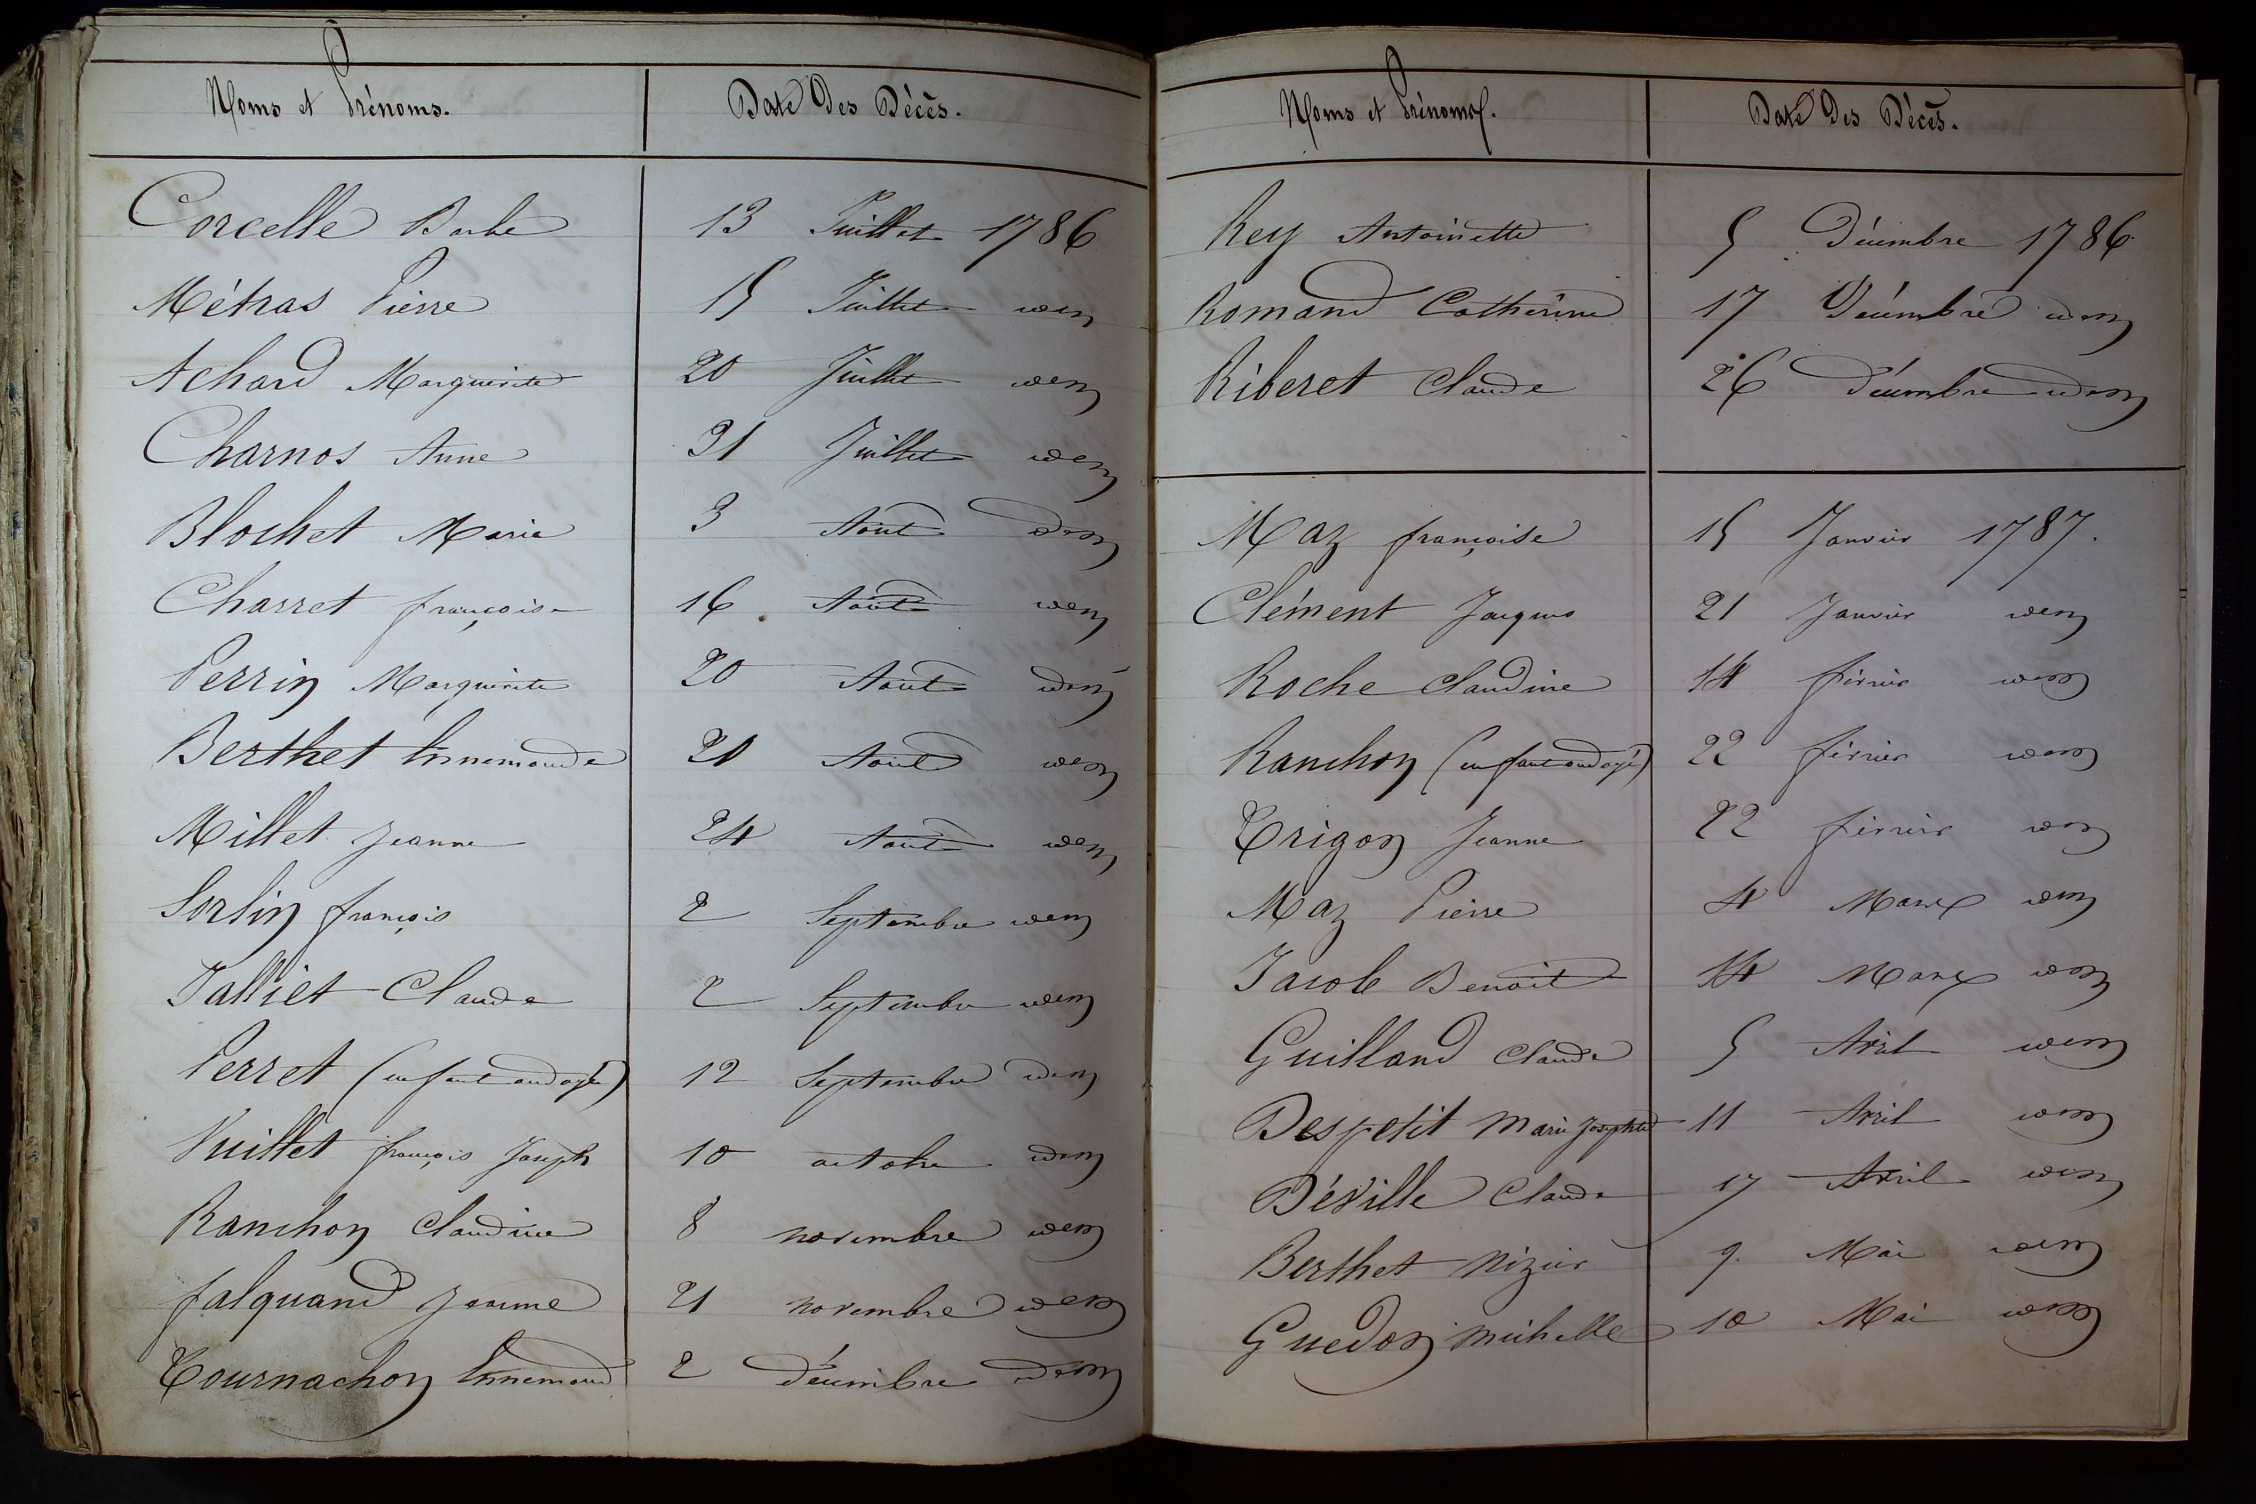 Noms et Prénoms. Date des Décès.
Corcelle Barbe 13 Juillet 1786
Métras Pierre 15 Juillet idem
Achard Marguerite 20 Juillet idem
Charnos Anne 31 Juillet idem
Blochet Marie 3 Août idem
Charret françoise 16 Août idem
Perrin Marguerite 20 Août idem
Berthet Ennemonde 21 Août idem
Millet Jeanne 24 Août idem
Sorlin françois 2 Septembre idem
Jalliet Claude 2 Septembre idem
Perret (enfant ondoyé) 12 Septembre idem
Vuillet françois Joseph 10 octobre idem
Ranchon Claudine 8 novembre idem
falquand Jeanne 21 novembre idem
Tournachon Ennemond 2 décembre idem
Noms et Prénoms. Date des Décès.
Rey Antoinette 5 Décembre 1786
Romand Catherine 17 Décembre idem
Riberet Claude 26 décembre idem
Maz françoise 15 Janvier 1787.
Clément Jacques 21 Janvier idem
Roche Claudine 14 février idem
Ranchon (enfant ondoyé) 22 février idem
Trigon Jeanne 22 février idem
Maz Pierre 4 Mars idem
Jacob Benoit 14 Mars idem
Guilland Claude 5 Avril idem
Despetit Marie Josephte 11 Avril idem
Déville Claude 17 Avril idem
Berthet Nizier 9. Mai idem
Guedon Michelle 10 Mai idem